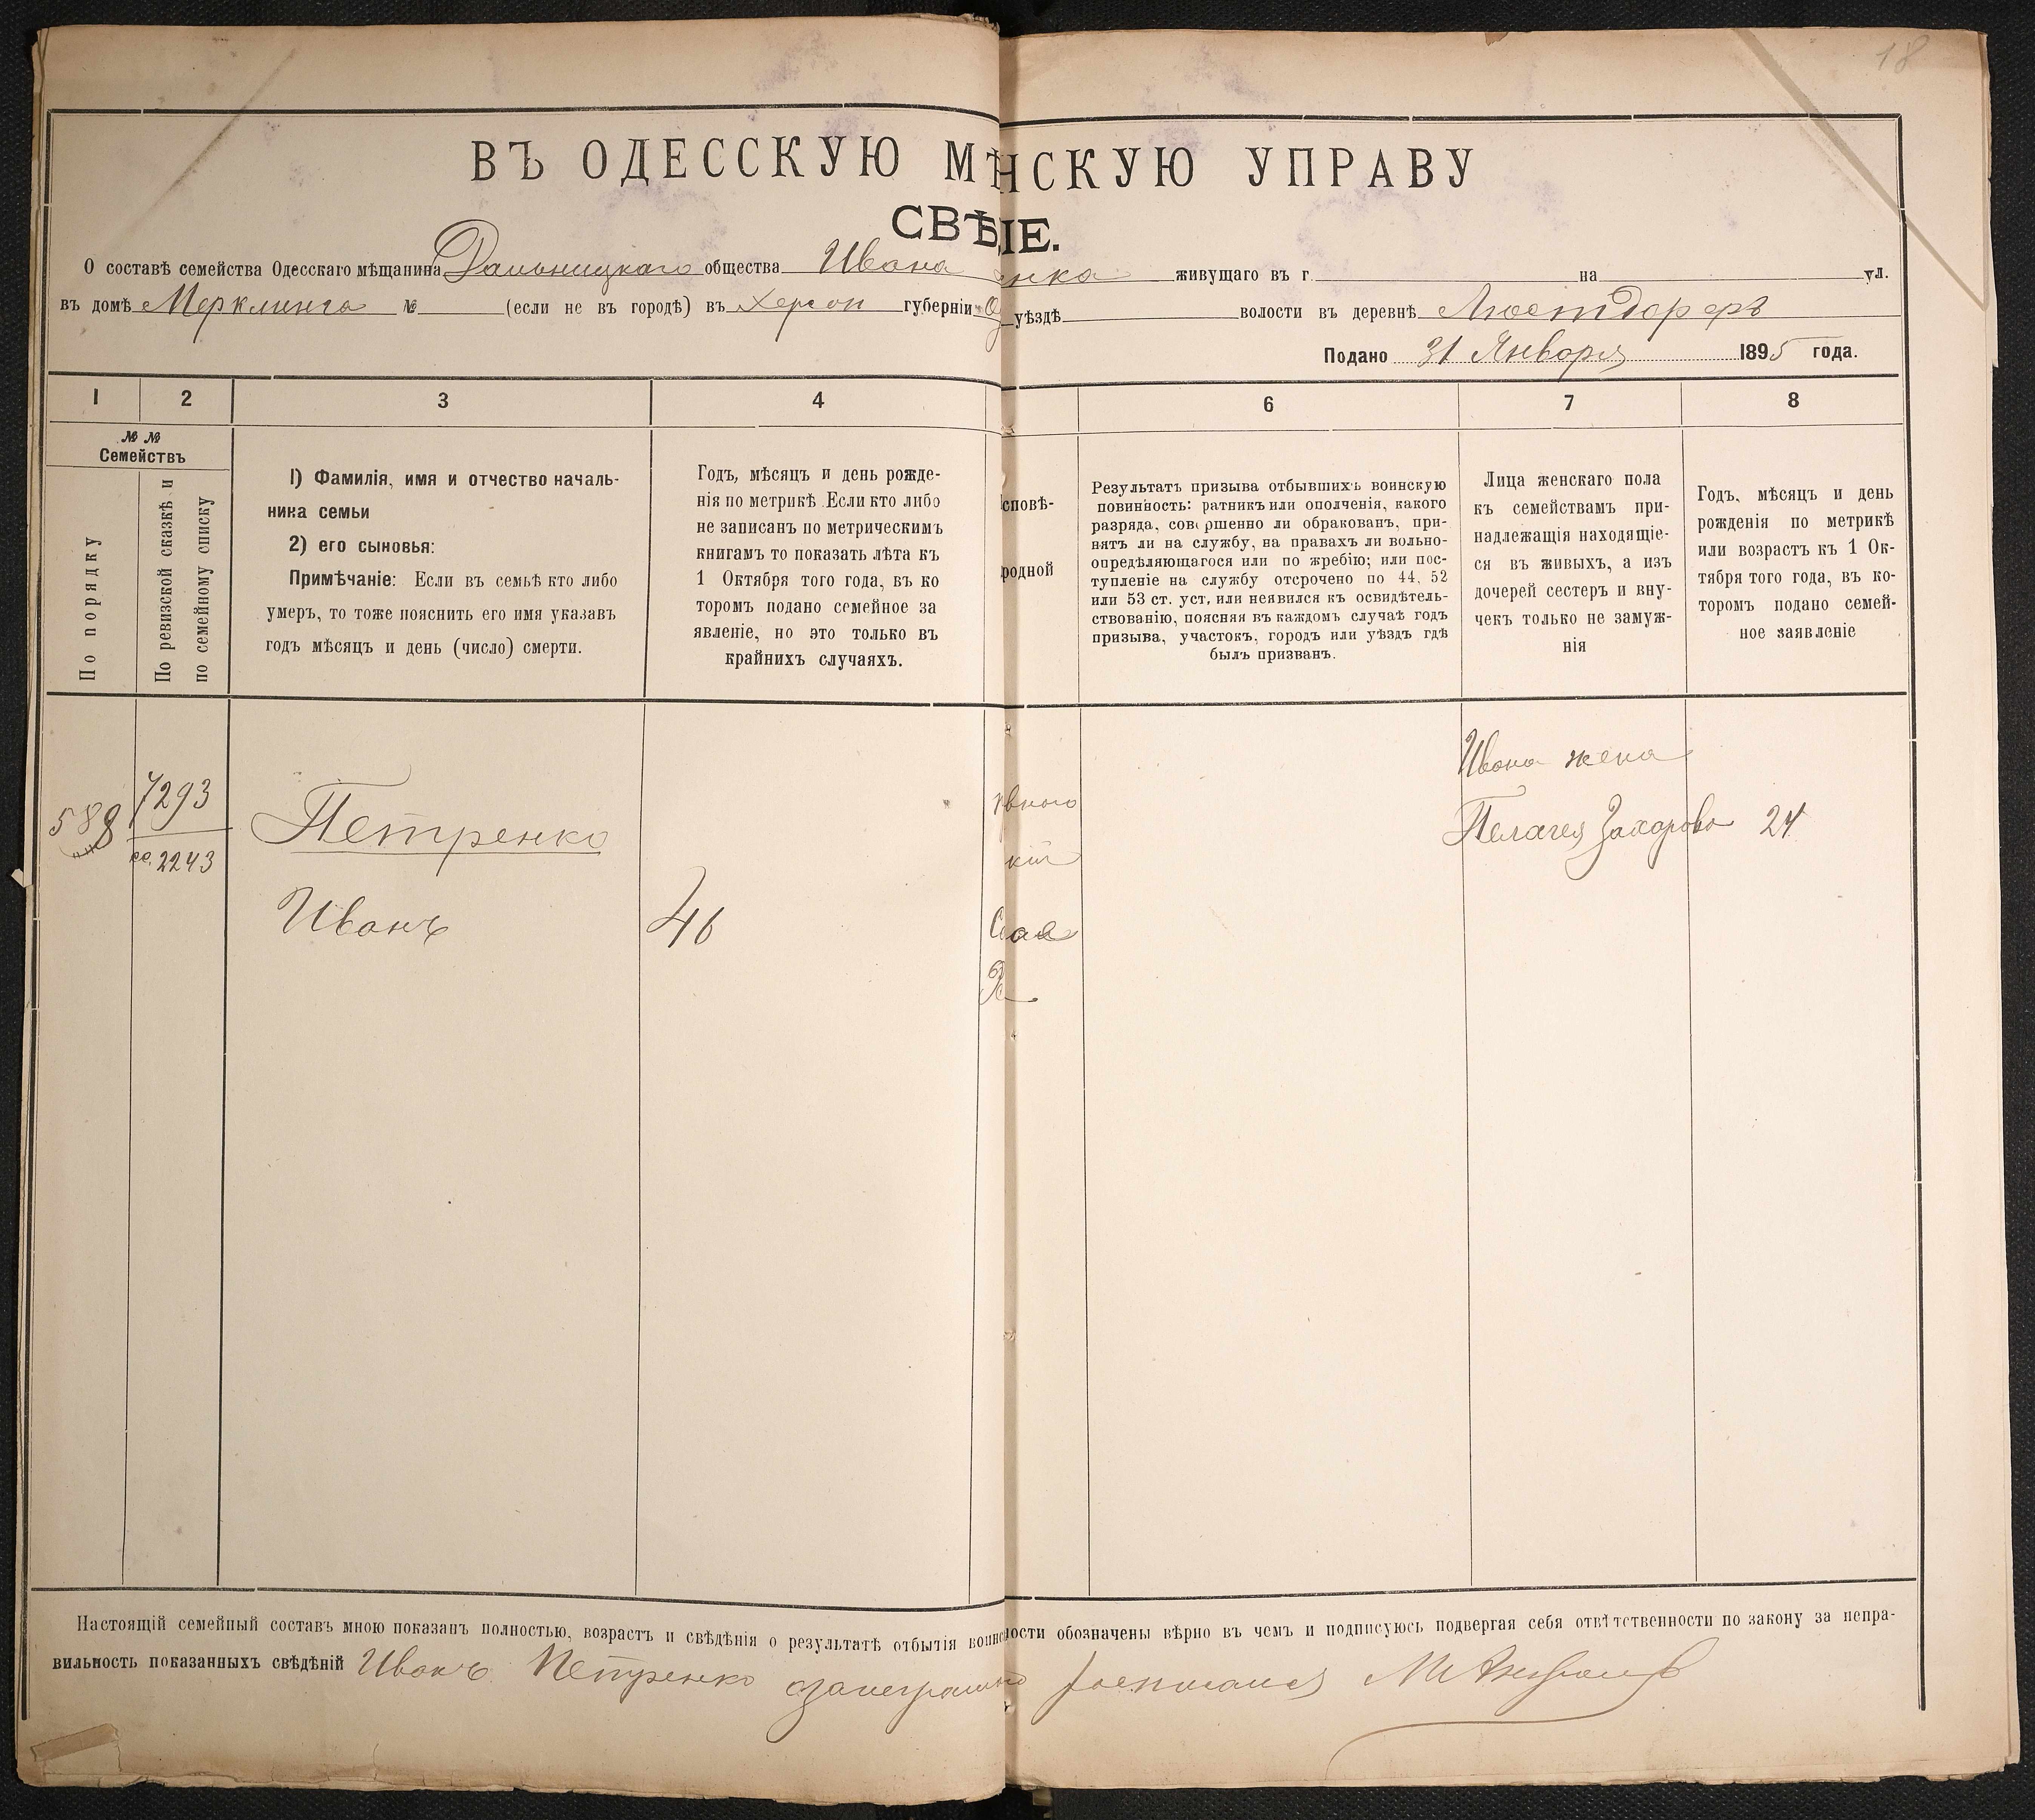 18
ВЪ ОДЕССКУЮ МѢНСКУЮ УПРАВУ
СВѢІЕ.
О составѣ семейства Одесскаго мѣщанина Дальницкаго общества Ивана енка живущаго въ г. на ул.
въ домѣ Мерклинга № (если не въ городѣ) въ Херсон губерніи Од уѣздѣ волости въ деревнѣ Люстдорфъ
Подано 31 Января 1895 года.
1 2 3 4 6 7 8
№ №
Семействъ
По порядку
По ревизской сказкѣ и
по семейному списку
1) Фамилія, имя и отчество началь-
ника семьи
2) его сыновья:
Примѣчаніе: Если въ семьѣ кто либо
умеръ, то тоже пояснить его имя указавъ
годъ мѣсяцъ и день (число) смерти.
Годъ, мѣсяцъ и день рожде-
нія по метрикѣ Если кто либо
не записанъ по метрическимъ
книгамъ то показать лѣта къ
1 Октября того года, въ ко
торомъ подано семейное за
явленіе, но это только въ
крайнихъ случаяхъ.
сповѣ-
родной
Результатъ призыва отбывшихъ воинскую
повинность: ратникъ или ополченія, какого
разряда, совершенно ли обракованъ, при-
нятъ ли на службу, на правахъ ли вольно-
опредѣляющагося или по жребію; или пос-
тупленіе на службу отсрочено по 44, 52
или 53 ст. уст, или неявился къ освидѣтель-
ствованію, поясняя въ каждомъ случаѣ годъ
призыва, участокъ, городъ или уѣздъ гдѣ
былъ призванъ.
Лица женскаго пола
къ семействамъ при-
надлежащія находящіе-
ся въ живыхъ, а изъ
дочерей сестеръ и вну-
чекъ только не замуж-
нія
Годъ, мѣсяцъ и день
рожденія по метрикѣ
или возрастъ къ 1 Ок-
тября того года, въ ко-
торомъ подано семей-
ное заявленіе
588
7293
2243
Петренко
Иванъ
46
вного
кій
Ивана жена
Пелагея Захарова 24
Настоящій семейный составъ мною показанъ полностью, возрастъ и свѣдѣнія о результатѣ отбытія воинсности обозначены вѣрно въ чемъ и подписуюсь подвергая себя отвѣтственности по закону за непра-
вильность показанныхъ свѣдѣній Иванъ Петренко